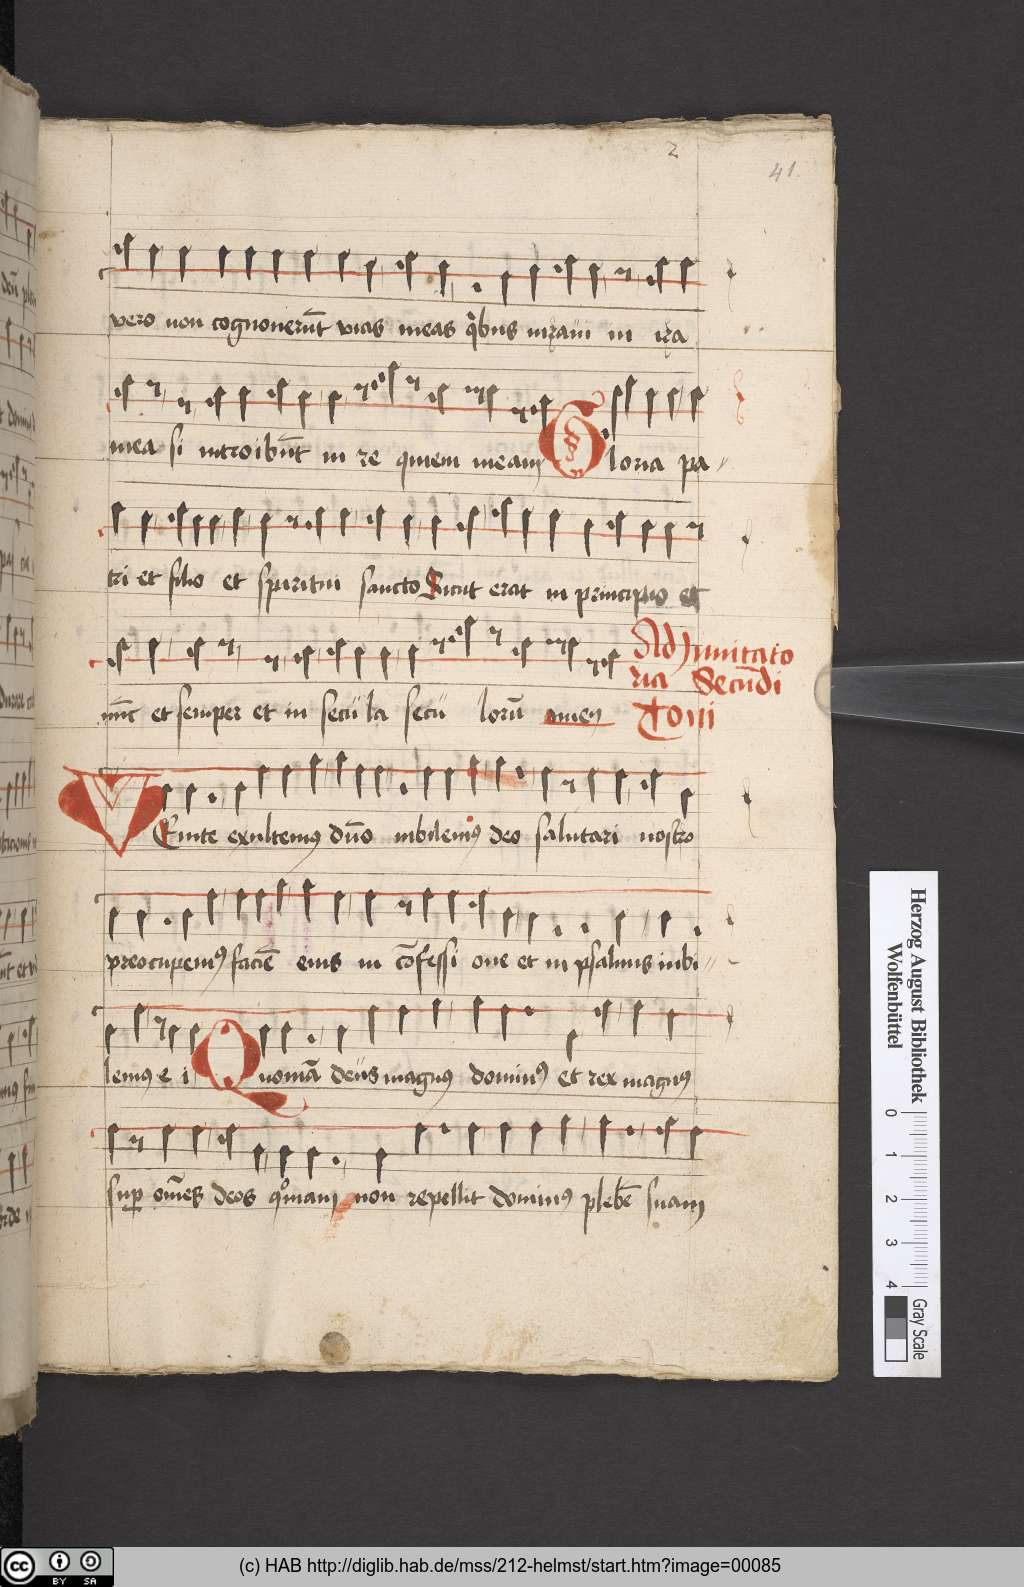 2
41.
vero non cognouerūt vias meas q̄bus iuraui in ira
mea si introibūt in re quiem meam Gloria pa
tri et filio et spiritui sancto Sicut erat in principio et
nūc et semper et in secu la secu lorū amen
Ad Inuitato
ria Secūdi
Toni
VEnite exultemꝰ dūo iubilemꝰ deo salutari nostro
preocupemꝰ faciē eius in cōfessi one et in psalmis iubi
lemꝰ e i Quoniā deus magnꝰ dominꝰ et rex magnꝰ
suꝑ om̄es deos qm̄ non repellit dominꝰ plebē suam
Herzog August Bibliothek
Wolfenbüttel
0 1 2 3 4
Gray Scale
cc BY SA
(c) HAB http://diglib.hab.de/mss/212-helmst/start.htm?image=00085